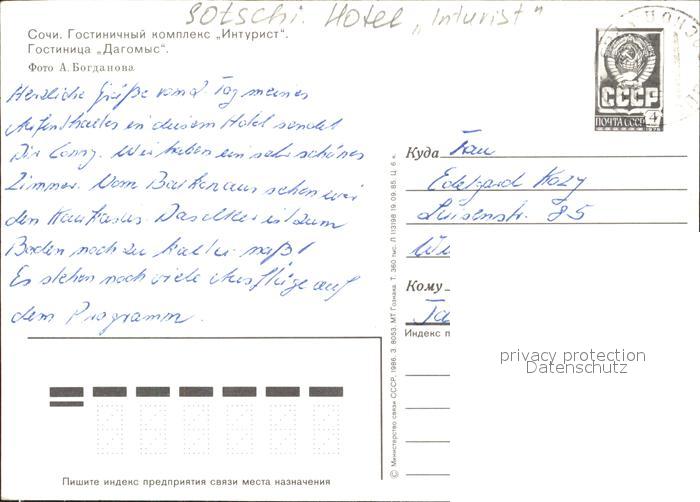 Sotschi. Hotel „Inturist"
Сочи. Гостиничный комплекс „Интурист".
Гостиница „Дагомыс".
Фото А. Богданова
Herzliche Grüße vom 2. Tag meines
Aufenthaltes in diesem Hotel sendet
Dir Conny. Wir haben ein sehr schönes
Zimmer. Vom Balkon aus sehen wir
den Kaukasus. Das Meer ist zum
Baden noch zu kalt u. naß!
Es stehen noch viele Ausflüge auf
dem Programm.
СССР
ПОЧТА СССР 4
Куда Frau
Edelgard
Luisenstr. 85
Wu
Кому
Ta
Индекс п
privacy protection
Datenschutz
© Министерство связи СССР, 1986. З. 8053. МТ Гознака. Т. 360 тыс. Л 113198 19.09.85. Ц. 6 к.
Пишите индекс предприятия связи места назначения